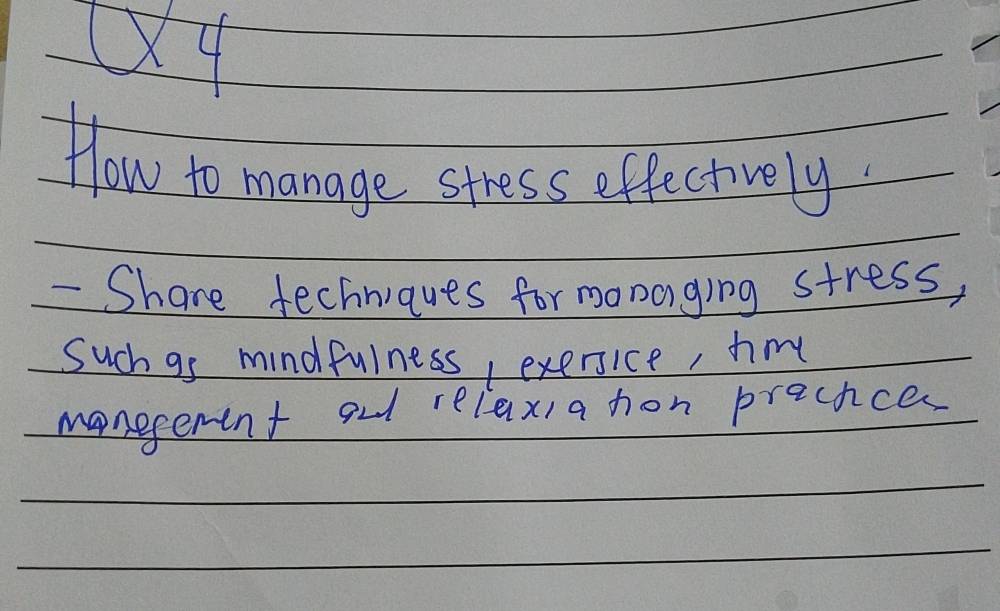 Q4
How to manage stress effectively.
- Share techniques for managing stress,
such as mindfulness, exersice, time
manegement and relaxiation practices